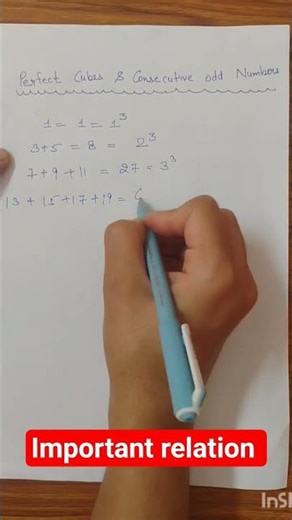 Perfect Cubes & Consecutive odd Numbers
1 = 1 = 1³
3+5 = 8 = 2³
7 + 9 + 11 = 27 = 3³
13 + 15 + 17 + 19 =
Important relation
InS